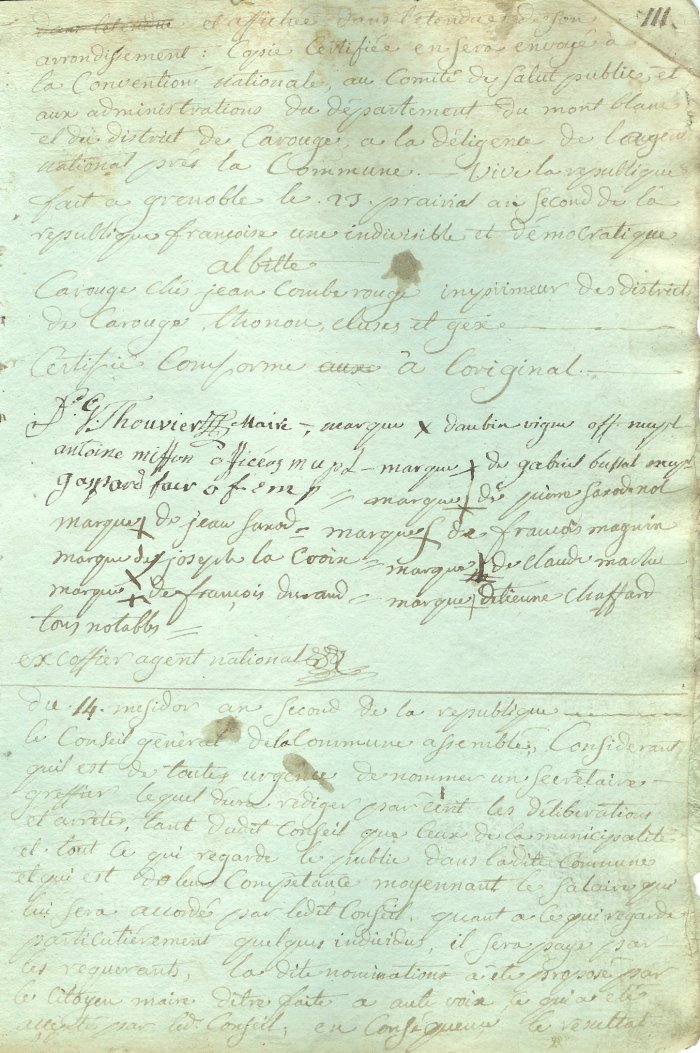 111
dans letendue et affichée dans letendue de son
arrondissement : Copie Certifiée en sera envoyé à
la Convention nationale, au Comité de Salut public, et
aux administrations du département du mont blanc
et du district de Carouge, a la déligence de lagent
national près la Commune. — Vive la republique
fait a grenoble le 23. prairial an second de la
republique francoise une indivisible et démocratique
albitte
Carouge chés jean Comberouge imprimeur des district
de Carouge, thonon, cluses et gex
Certifié Comforme aux à loriginal.
Thouvier Maire, marque x daubin vigne off mupl
antoine miffon officéos mupl - marque x de gabriel bussat mupl
gaspard favr of emp = marque x de pierre
marque x de jean = marque x de francois magnin
marque de joseph la Croix = marque x de claude
marque x de françois durand = marque x detienne Chaffard
tous notabbs =
excoffier agent national
du 14. mesidor an second de la republique
le Conseil général de la Commune assemblé, Considerant
quil est de toutes urgence de nommer un Secrétaire
greffier lequel dura rediger par ecrit les deliberations
et arretés, tant dudit Conseil que Ceux de la municipalité
et tout Ce qui regarde le public dans ladite Commune
et qui est de leur Compétance moyennant le Salaire qui
lui Sera accordé par ledit Conseil, quant a Ce qui regarde
particuliérement quelques individus, il sera payé par
les requerants, la dite nominations a été proposé par
le Citoyen maire dêtre faite a aute voix, ce qui a été
accepté par led. Conseil, en Conséquence le resultat